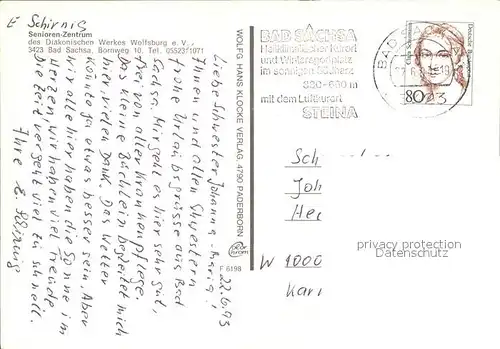 E Schirnig
Senioren-Zentrum
des Diakonischen Werkes Wolfsburg e.V.,
3423 Bad Sachsa, Bornweg 10, Tel. 05523/1071
22.6.93
Liebe Schwester Johanna-Maria!
Ihnen und allen Schwestern
frohe Urlaubsgrüsse aus Bad
Sachsa. Mir geht es hier sehr gut,
frei von aller Krankenpflege.
Das kleine Büchlein begleitet mich
hier, vielen Dank. Das Wetter
könnte ja etwas besser sein. Aber
wir alle hier haben die Sonne im
Herzen, wir haben viel Freude.
Die Zeit vergeht viel zu schnell.
Ihre E. Schirnig
WOLFG. HANS KLOCKE VERLAG, 4790 PADERBORN
F 6198
BAD SACHSA
Heilklimatischer Kurort
und Wintersportplatz
im sonnigen Südharz
mit dem Luftkurort
STEINA
BAD SA
Deutsche
80
Sch
Joh
He
W 1000
Kar
privacy protection
Datenschutz